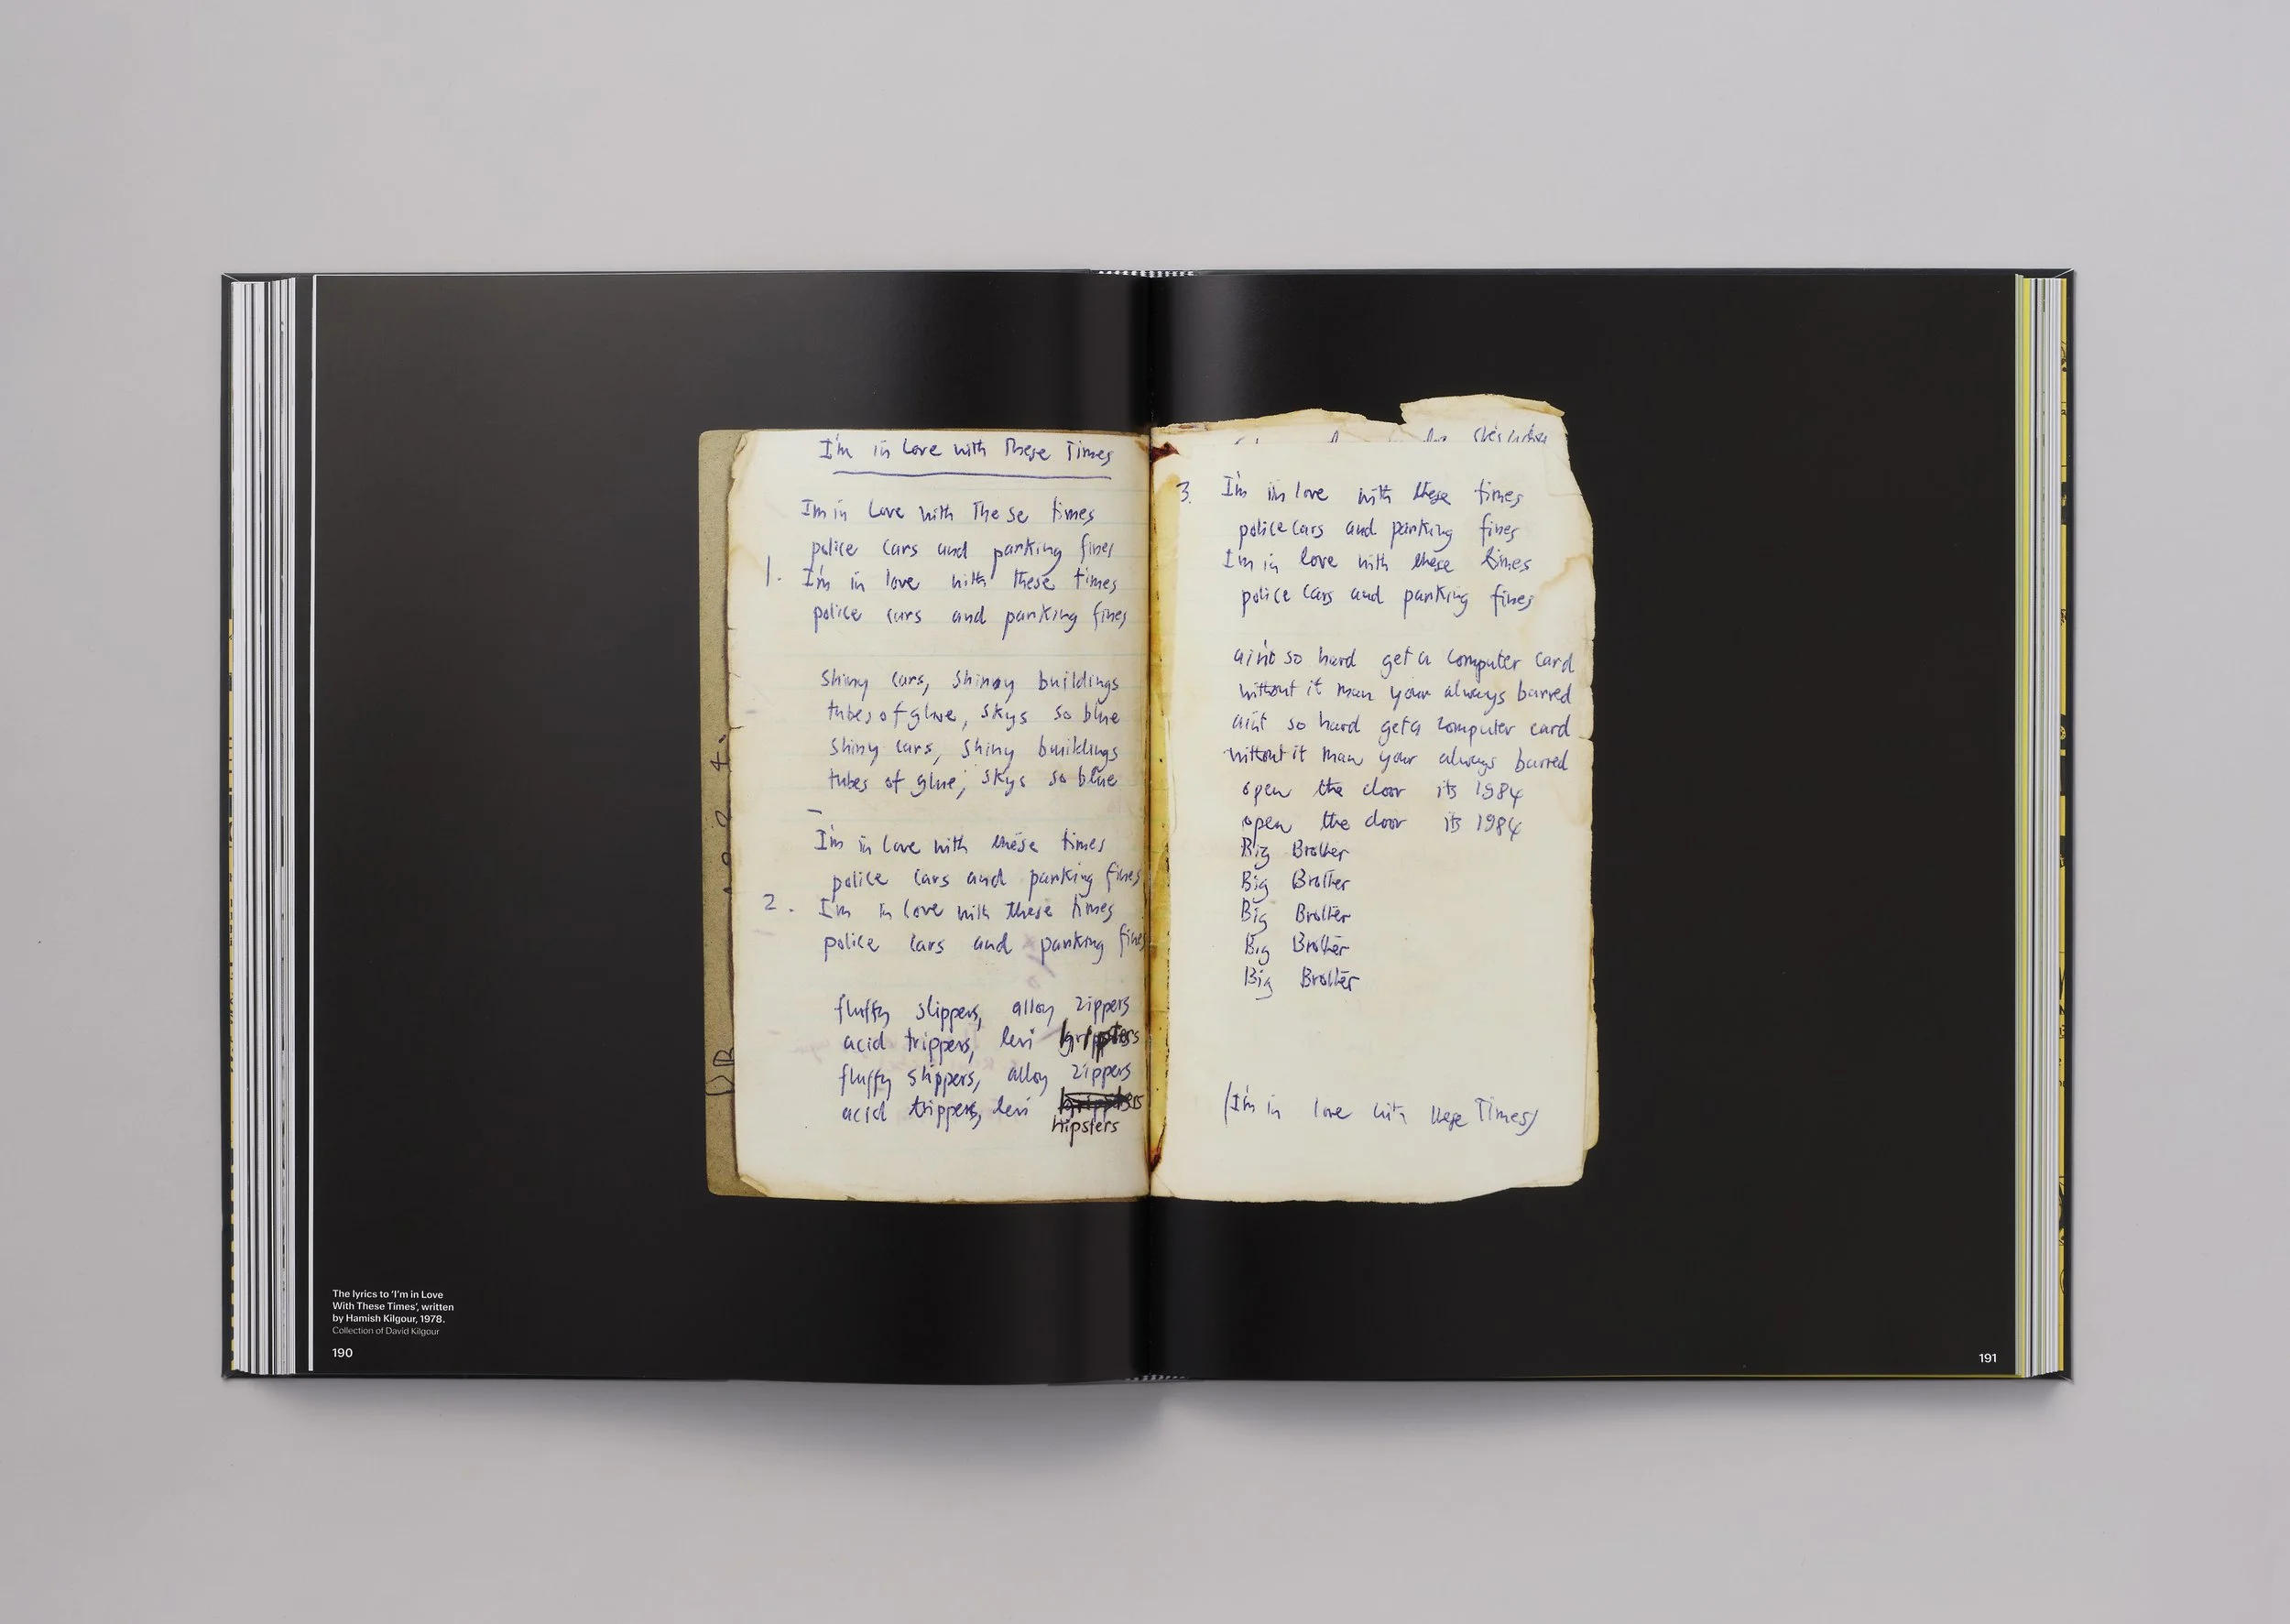 I'm in Love with These Times
I'm in Love with These times
police cars and parking fines
1. I'm in love with these times
police cars and parking fines
Shiny cars, shiney buildings
tubes of glue, skys so blue
shiny cars, shiny buildings
tubes of glue, skys so blue
I'm in Love with these times
police cars and parking fines
2. I'm in Love with these times
police cars and parking fines
fluffy slippers, alloy zippers
acid trippers, levi
fluffy slippers, alloy zippers
acid trippers, levi
hipsters
3. I'm in love with these times
police cars and parking fines
I'm in love with these times
police cars and parking fines
ain't so hard get a computer card
without it man your always barred
aint so hard get a computer card
without it man your always barred
open the door its 1984
open the door its 1984
Big Brother
Big Brother
Big Brother
Big Brother
Big Brother
(I'm in love with these Times)
The lyrics to 'I'm in Love
With These Times', written
by Hamish Kilgour, 1978.
Collection of David Kilgour
190
191